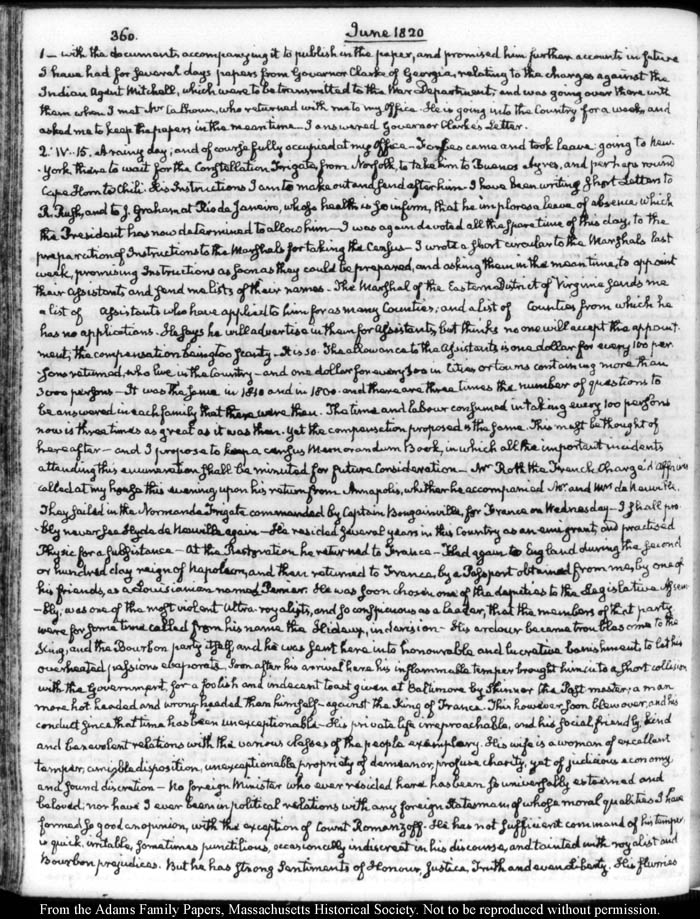 360.
June 1820
1 — with the documents accompanying it to publish in the paper, and promised him further accounts in future
I have had for several days papers from Governor Clarke of Georgia, relating to the charges against the
Indian Agent Mitchell, which were to be transmitted to the War Department; and was going over there with
them when I met Mr Calhoun, who returned with me to my office. He is going into the Country for a week, and
asked me to keep the papers in the meantime — I answered Governor Clarke's Letter.
2. IV. 15. A rainy day; and of course fully occupied at my office — Forbes came and took leave: going to New-
York there to wait for the Constellation Frigate, from Norfolk, to take him to Buenos Ayres, and perhaps round
Cape Horn to Chili. His Instructions I am to make out and send after him. I have been writing short Letters to
R. Rush, and to J. Graham at Rio de Janeiro, whose health is so infirm, that he implores a leave of absence, which
the President has now determined to allow him — I was again devoted all the spare time of this day, to the
preparation of Instructions to the Marshals for taking the Census — I wrote a short circular to the Marshals last
week, promising Instructions as soon as they could be prepared, and asking them in the mean time, to appoint
their Assistants and send me lists of their names — The Marshal of the Eastern District of Virginia sends me
a list of Assistants who have applied to him for as many Counties, and a list of Counties from which he
has no applications. He says he will advertise in them for Assistants, but thinks no one will accept the appoint-
ment, the compensation being too scanty — It is so. The allowance to the Assistants is one dollar for every 100 per-
sons returned, who live in the Country — and one dollar for every 300 in Cities or towns containing more than
3000 persons — It was the same in 1810 and in 1800. and there are three times the number of questions to
be answered in each family that there were then. The time and labour consumed in taking every 100 persons
now is three times as great as it was then. Yet the compensation proposed is the same. This must be thought of
hereafter — and I propose to keep a Census Memorandum Book, in which all the important incidents
attending this enumeration shall be minuted for future consideration — Mr Roth the French Chargé d'Affaires
called at my house this evening upon his return from Annapolis, whither he accompanied Mr and Mrs de Neuville.
They sailed in the Normande Frigate commanded by Captain Bougainville, for France on Wednesday — I shall pro-
-bly never see Hyde de Neuville again — He resided several years in this Country as an emigrant, and practised
Physic for a subsistance — At the Restoration he returned to France — Fled again to England during the second
or hundred day reign of Napoleon, and then returned to France, by a Passport obtained from me, by one of
his friends, as a Louisianian named He was soon chosen one of the deputies to the Legislative Assem-
-bly, was one of the most violent Ultra-royalists, and so conspicuous as a leader, that the members of that party
were for some time called from his name the Hideux, in derision — His ardour became troublesome to the
King, and the Bourbon party itself, and he was sent here into honourable and lucrative banishment, to let his
overheated passions evaporate. Soon after his arrival here his inflammable temper brought him into a short collision
with the Government, for a foolish and indecent toast given at Baltimore by Skinner the Post master; a man
more hot headed and wrong headed than himself — against the King of France. This however soon blew over, and his
conduct since that time has been unexceptionable — His private life irreproachable, and his social friendly, kind
and benevolent relations with the various classes of the people exemplary. His wife is a woman of excellent
temper, amiable disposition, unexceptionable propriety of demeanor, profuse charity, yet of judicious economy
and sound discretion — No foreign Minister who ever resided here has been so universally esteemed and
beloved; nor have I ever been in political relations with any foreign Statesman of whose moral qualities I have
formed so good an opinion, with the exception of Count Romanzoff. He has not sufficient command of his temper
is quick, irritable, sometimes punctilious, occasionally indiscreet in his discourse, and tainted with royalist and
Bourbon prejudices. But he has strong sentiments of Honour, Justice, Truth and even Liberty. His flurries
From the Adams Family Papers, Massachusetts Historical Society. Not to be reproduced without permission.